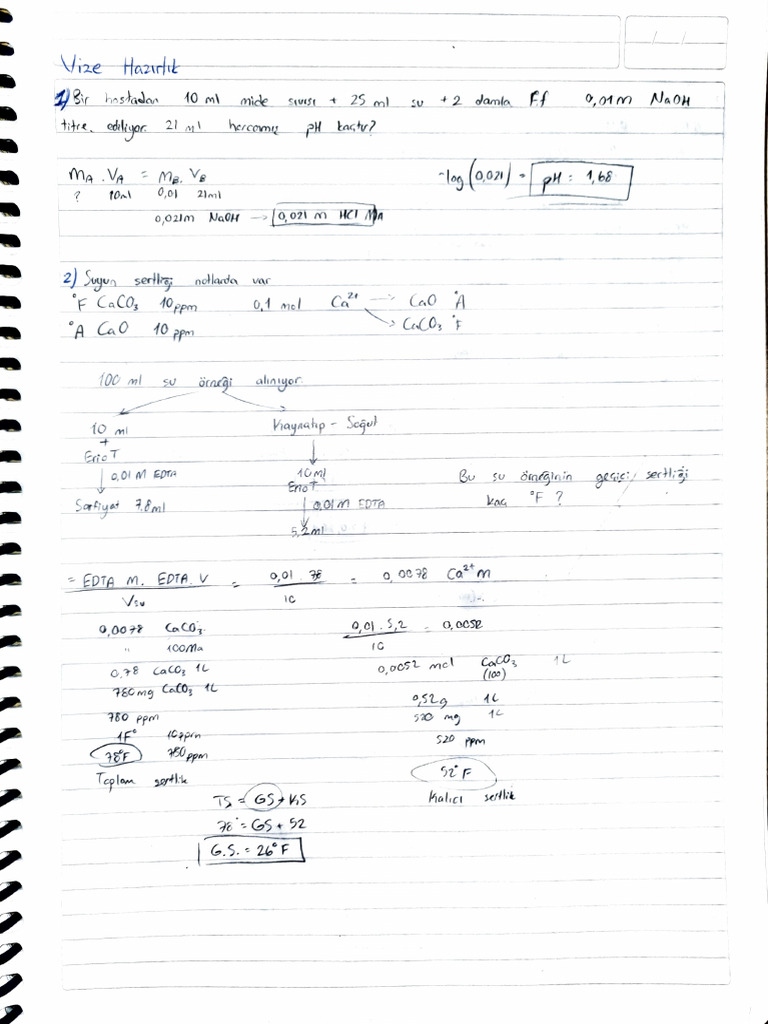 Vize Hazırlık
1) Bir hastadan 10 ml mide sıvısı + 25 ml su + 2 damla F.f 0,01 M NaOH
titre. ediliyor. 21 ml harcanmış pH kaçtır?
MA . VA = MB. VB
? 10ml 0,01 21ml
-log(0,021) = pH = 1,68
0,021m NaOH → 0,021 m HCl
2) Suyun sertliği notlarda var
°F CaCO3 10 ppm 0,1 mol Ca2+ → CaO °A
°A CaO 10 ppm → CaCO3 °F
100 ml su örneği alınıyor.
10 ml
+
Erio T
↓ 0,01 M EDTA
Sarfiyat 7.8ml
Kaynatıp - Soğut
↓
10ml
Erio T
↓ 0,01 M EDTA
5,2ml
Bu su örneğinin geçici sertliği
kaç °F ?
= EDTA M. EDTA. V / Vsu = 0,01 . 78 / 10 = 0,0078 Ca2+ M
0,0078 CaCO3
" 100Ma
0,78 CaCO3 1L
780mg CaCO3 1L
780 ppm
1F° 10ppm
78°F 780ppm
Toplam sertlik
0,01 . 5,2 / 10 = 0,0052
0,0052 mol CaCO3 1L
(100)
0,52g 1L
520 mg 1L
520 ppm
52°F
Kalıcı sertlik
TS = GS + KS
78° = GS + 52
G.S. = 26°F